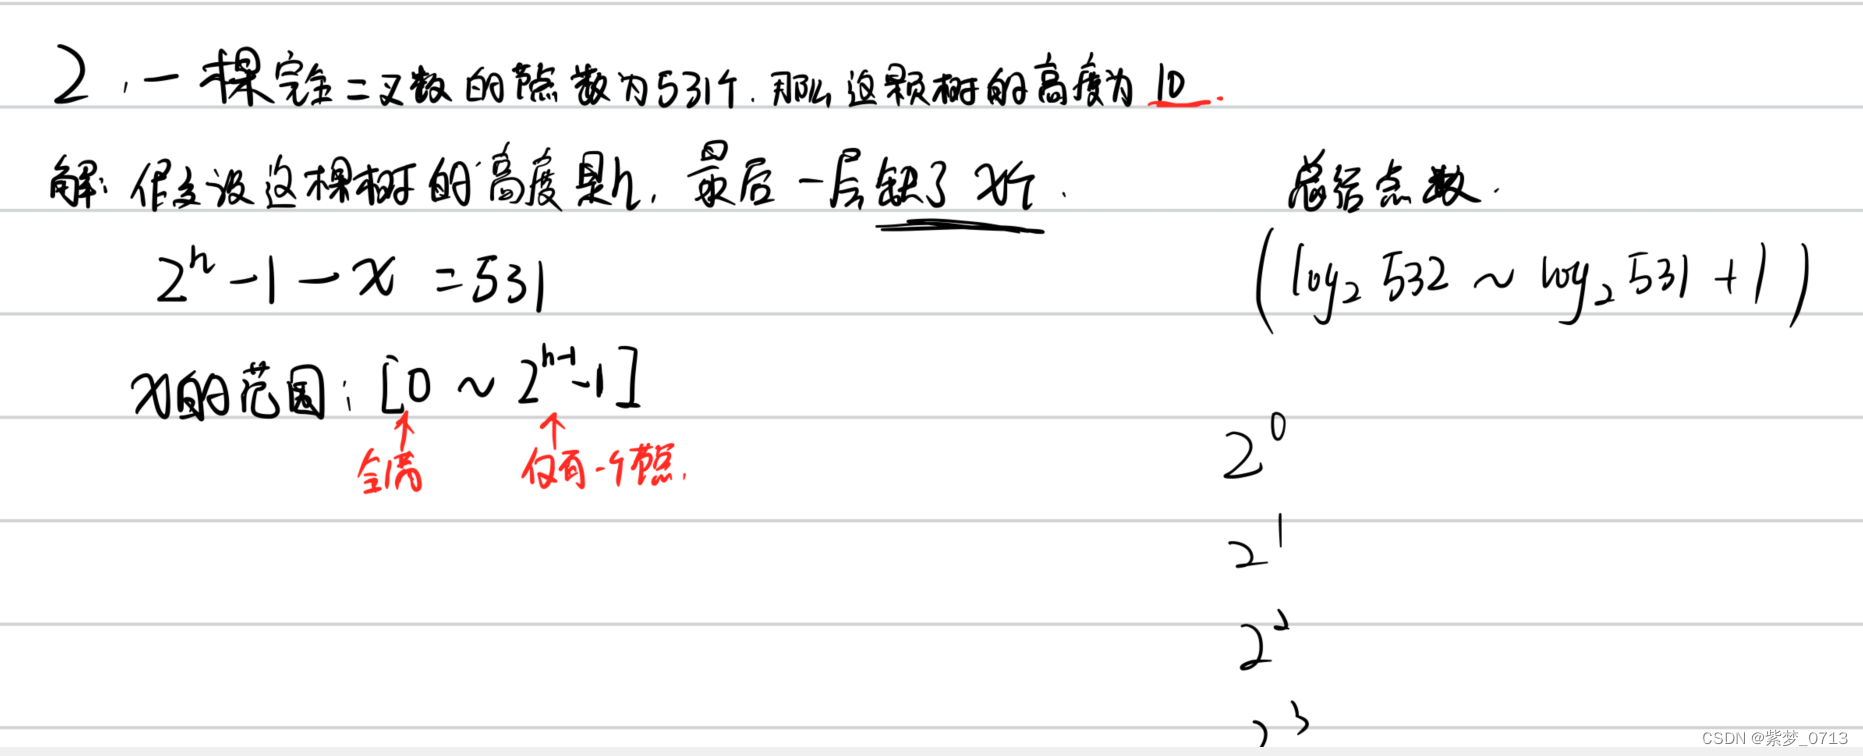 2.一棵完全二叉数的节点数为531个.那么这颗树的高度为10.
解:假设这棵树的高度是h,最后一层缺了x个.
2^h-1-x=531
x的范围:[0~2^{h-1}-1]
全满 仅有一个节点.
总结点数.
(log₂532~log₂531+1)
2^0
2^1
2^2
2^3
CSDN @紫梦_0713